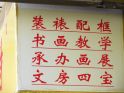 装裱配框
书画教学
承办画展
文房四宝